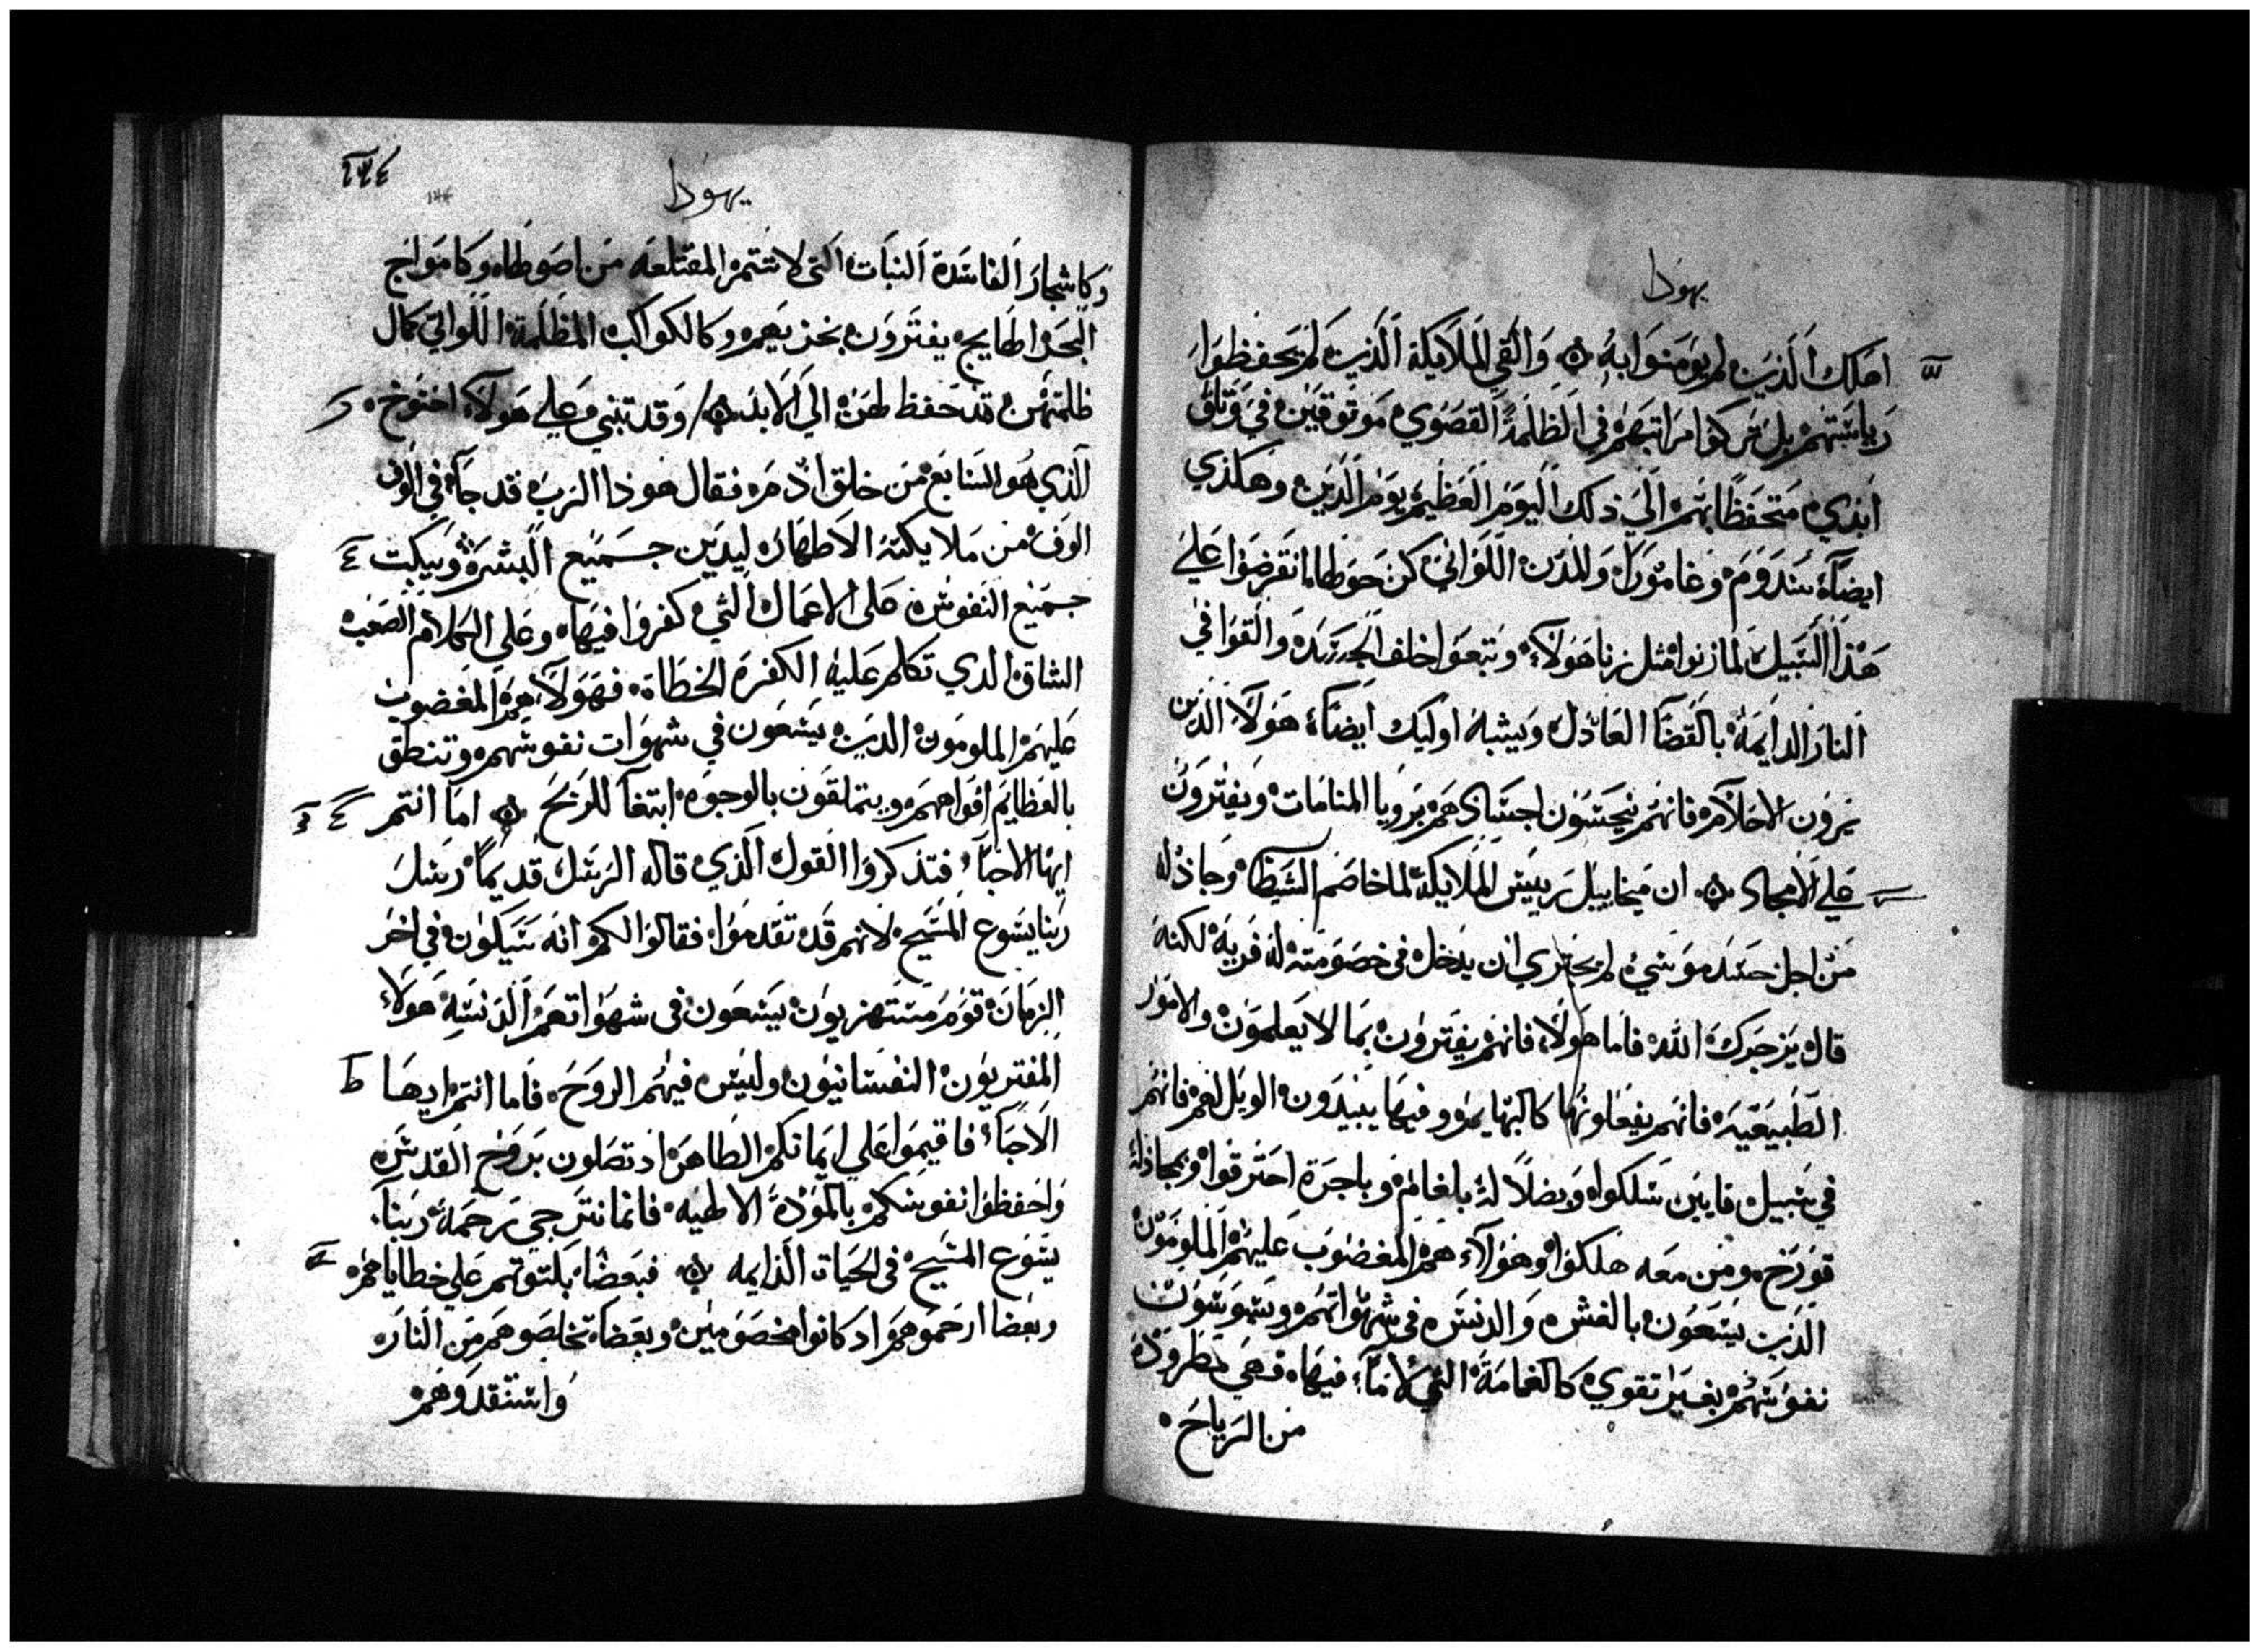 يهودا
اهلك الذين لم يومنوا به والقي الملايكة الذين لم يحفظوا
رياستهم بل تركوا مراتبهم في الظلمة القصوي موتوقين في وتاق
ابدي متحفظا بهم الي ذلك اليوم العظيم يوم الدين وهكذي
ايضاء سدوم وغامورا والمدن اللواتي كن حولها انقرضوا علي
هذا السبيل لما زنوا مثل زنا هولاء وتبعوا خلف الجسد والقوا في
النار الدايمة بالقضا العادل ويشبه اوليك ايضاء هولاء الذين
يرون الاحلام فانهم ينجسون اجسادهم برويا المنامات ويفترون
علي الامجاد ان ميخاييل رييس الملايكة لما خاصم الشيطان وجادله
من اجل جسد موسي لم يجتري ان يدخل في خصومته له فريه لكنه
قال يزجرك الله فاما هولاء فانهم يفترون بما لا يعلمون والامور
الطبيعيه فانهم يفعلونها كالبهايم وفيها يبيدون الويل لهم فانهم
في سبيل قايين سلكوا وبضلالة بلعام وباجرة احترقوا وبمجادلة
قورح ومن معه هلكوا وهولاء هم المغضوب عليهم الملومون
الذين يسعون بالغش والدنس في شهواتهم ويسوسون
نفوسهم بغير تقوي كالغمامة التي لا ماء فيها فهي مطرودة
من الرياح
يهودا
٢٣٤
وكاشجار الفاسدة النبات التي لا تتمر المقتلعه من اصولها وكامواج
البحر الهايج يفترون بخزيهم وكالكواكب المظلمة اللواتي كمال
ظلمتهن قد حفظ لهن الي الابد وقد تنبي علي هولاء اخنوخ
الذي هو السابع من خلق ادم فقال هوذا الرب قد جاء في الوف
الوف من ملايكته الاطهار ليدين جميع البشر ويبكت
جميع النفوس علي الاعمال التي كفروا فيها وعلي الكلام الصعب
الشاق الدي تكلم عليه الكفرة الخطاة فهولاء هم المغضوب
عليهم الملومون الدين يسعون في شهوات نفوسهم وتنطق
بالعظايم افواههم ويتملقون بالوجوه ابتغا للربح اما انتم
ايها الاحباء فتذكروا القول الذي قاله الرسل قديما رسل
ربنا يسوع المسيح لانهم قد تقدموا فقالوا لكم انه سيكون في اخر
الزمان قوم مستهزيون يسعون في شهواتهم الدنسه هولاء
المفتريون النفسانيون وليس فيهم الروح فاما انتم ايها
الاحباء فاقيموا علي ايمانكم الطاهر اد تصلون بروح القدس
واحفظوا نفوسكم بالمودة الالهيه فانما نترجي رحمة ربنا
يسوع المسيح في الحياة الدايمه فبعضا بكتوهم علي خطاياهم
وبعضا ارحموهم اد كانوا مخصومين وبعضا تخلصوهم من النار
واستنقدوهم